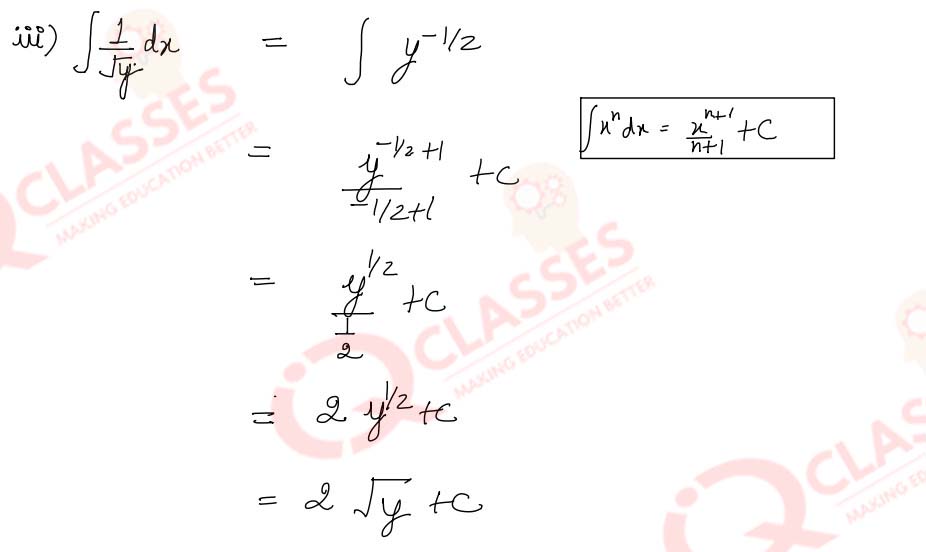 iii) ∫ 1/√y dx = ∫ y^{-1/2}
∫x^n dx = x^{n+1}/n+1 + C
= y^{-1/2+1}/-1/2+1 + C
= y^{1/2}/1/2 + C
= 2 y^{1/2} + C
= 2 √y + C
QCLASSES
MAKING EDUCATION BETTER
QCLASSES
MAKING EDUCATION BETTER
QCLASSES
MAKING ED